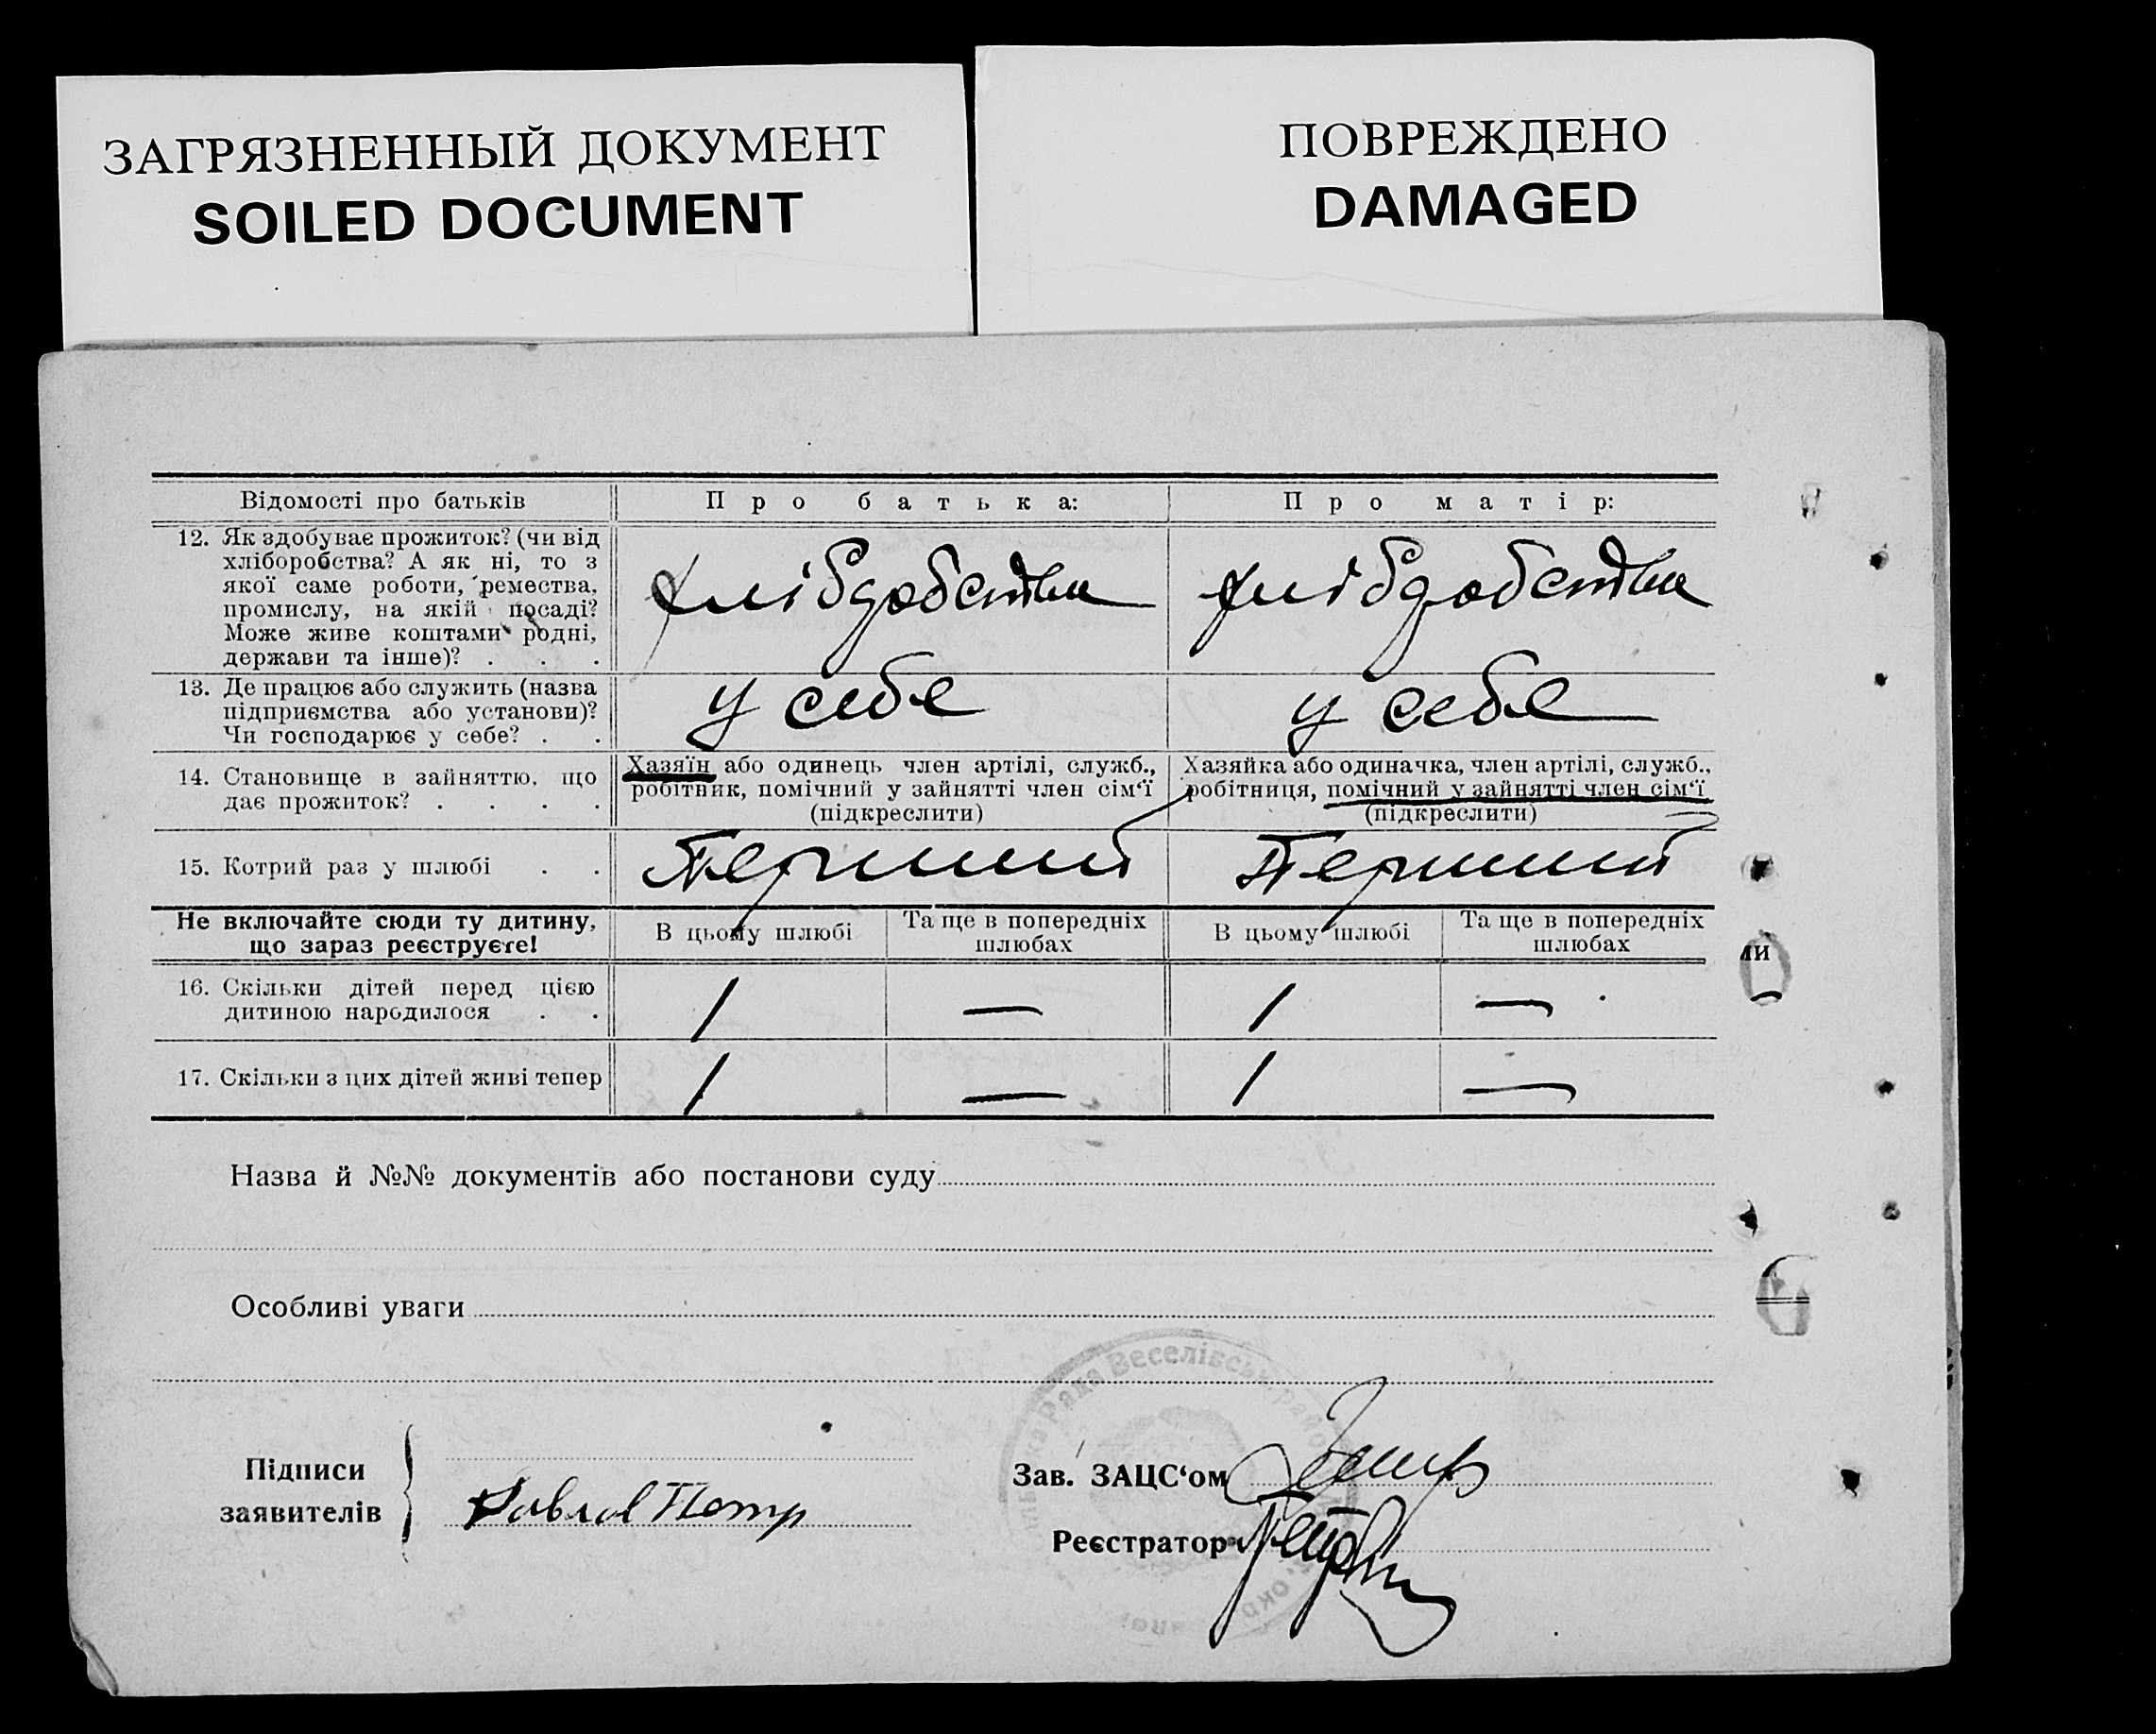 ЗАГРЯЗНЕННЫЙ ДОКУМЕНТ
SOILED DOCUMENT
ПОВРЕЖДЕНО
DAMAGED
Відомості про батьків
Про батька:
Про матір:
12. Як здобуває прожиток? (чи від
хліборобства? А як ні, то з
якої саме роботи, ремества,
промислу, на якій посаді?
Може живе коштами родні,
держави та інше)? . . .
хлібдобства
хлібдобства
13. Де працює або служить (назва
підприємства або установи)?
Чи господарює у себе? . .
у себе
у себе
14. Становище в зайняттю, що
дає прожиток? . . . .
Хазяїн або одинець член артілі, служб.,
робітник, помічний у зайнятті член сім‘ї
(підкреслити)
Хазяйка або одиначка, член артілі, служб.,
робітниця, помічний у зайнятті член сім‘ї
(підкреслити)
15. Котрий раз у шлюбі . .
Перший
Перший
Не включайте сюди ту дитину,
що зараз реєструєте!
В цьому шлюбі
Та ще в попередніх
шлюбах
В цьому шлюбі
Та ще в попередніх
шлюбах
16. Скільки дітей перед цією
дитиною народилося . .
1
—
1
—
17. Скільки з цих дітей живі тепер
1
—
1
—
Назва й №№ документів або постанови суду
Особливі уваги
Рада Веселівськ. район
Підписи
заявителів
Зав. ЗАЦС‘ом
Реєстратор